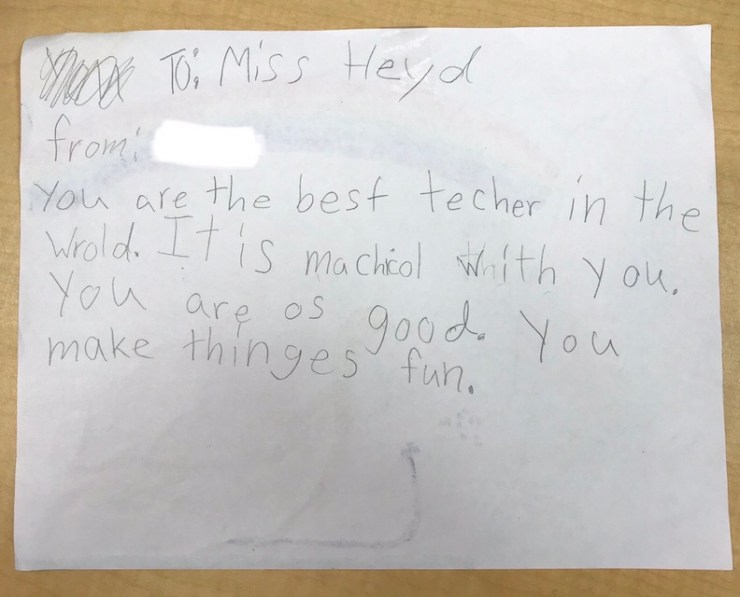 To: Miss Heyd
from:
You are the best techer in the
Wrold. It is machicol Whith you.
You are os good. You
make thinges fun.